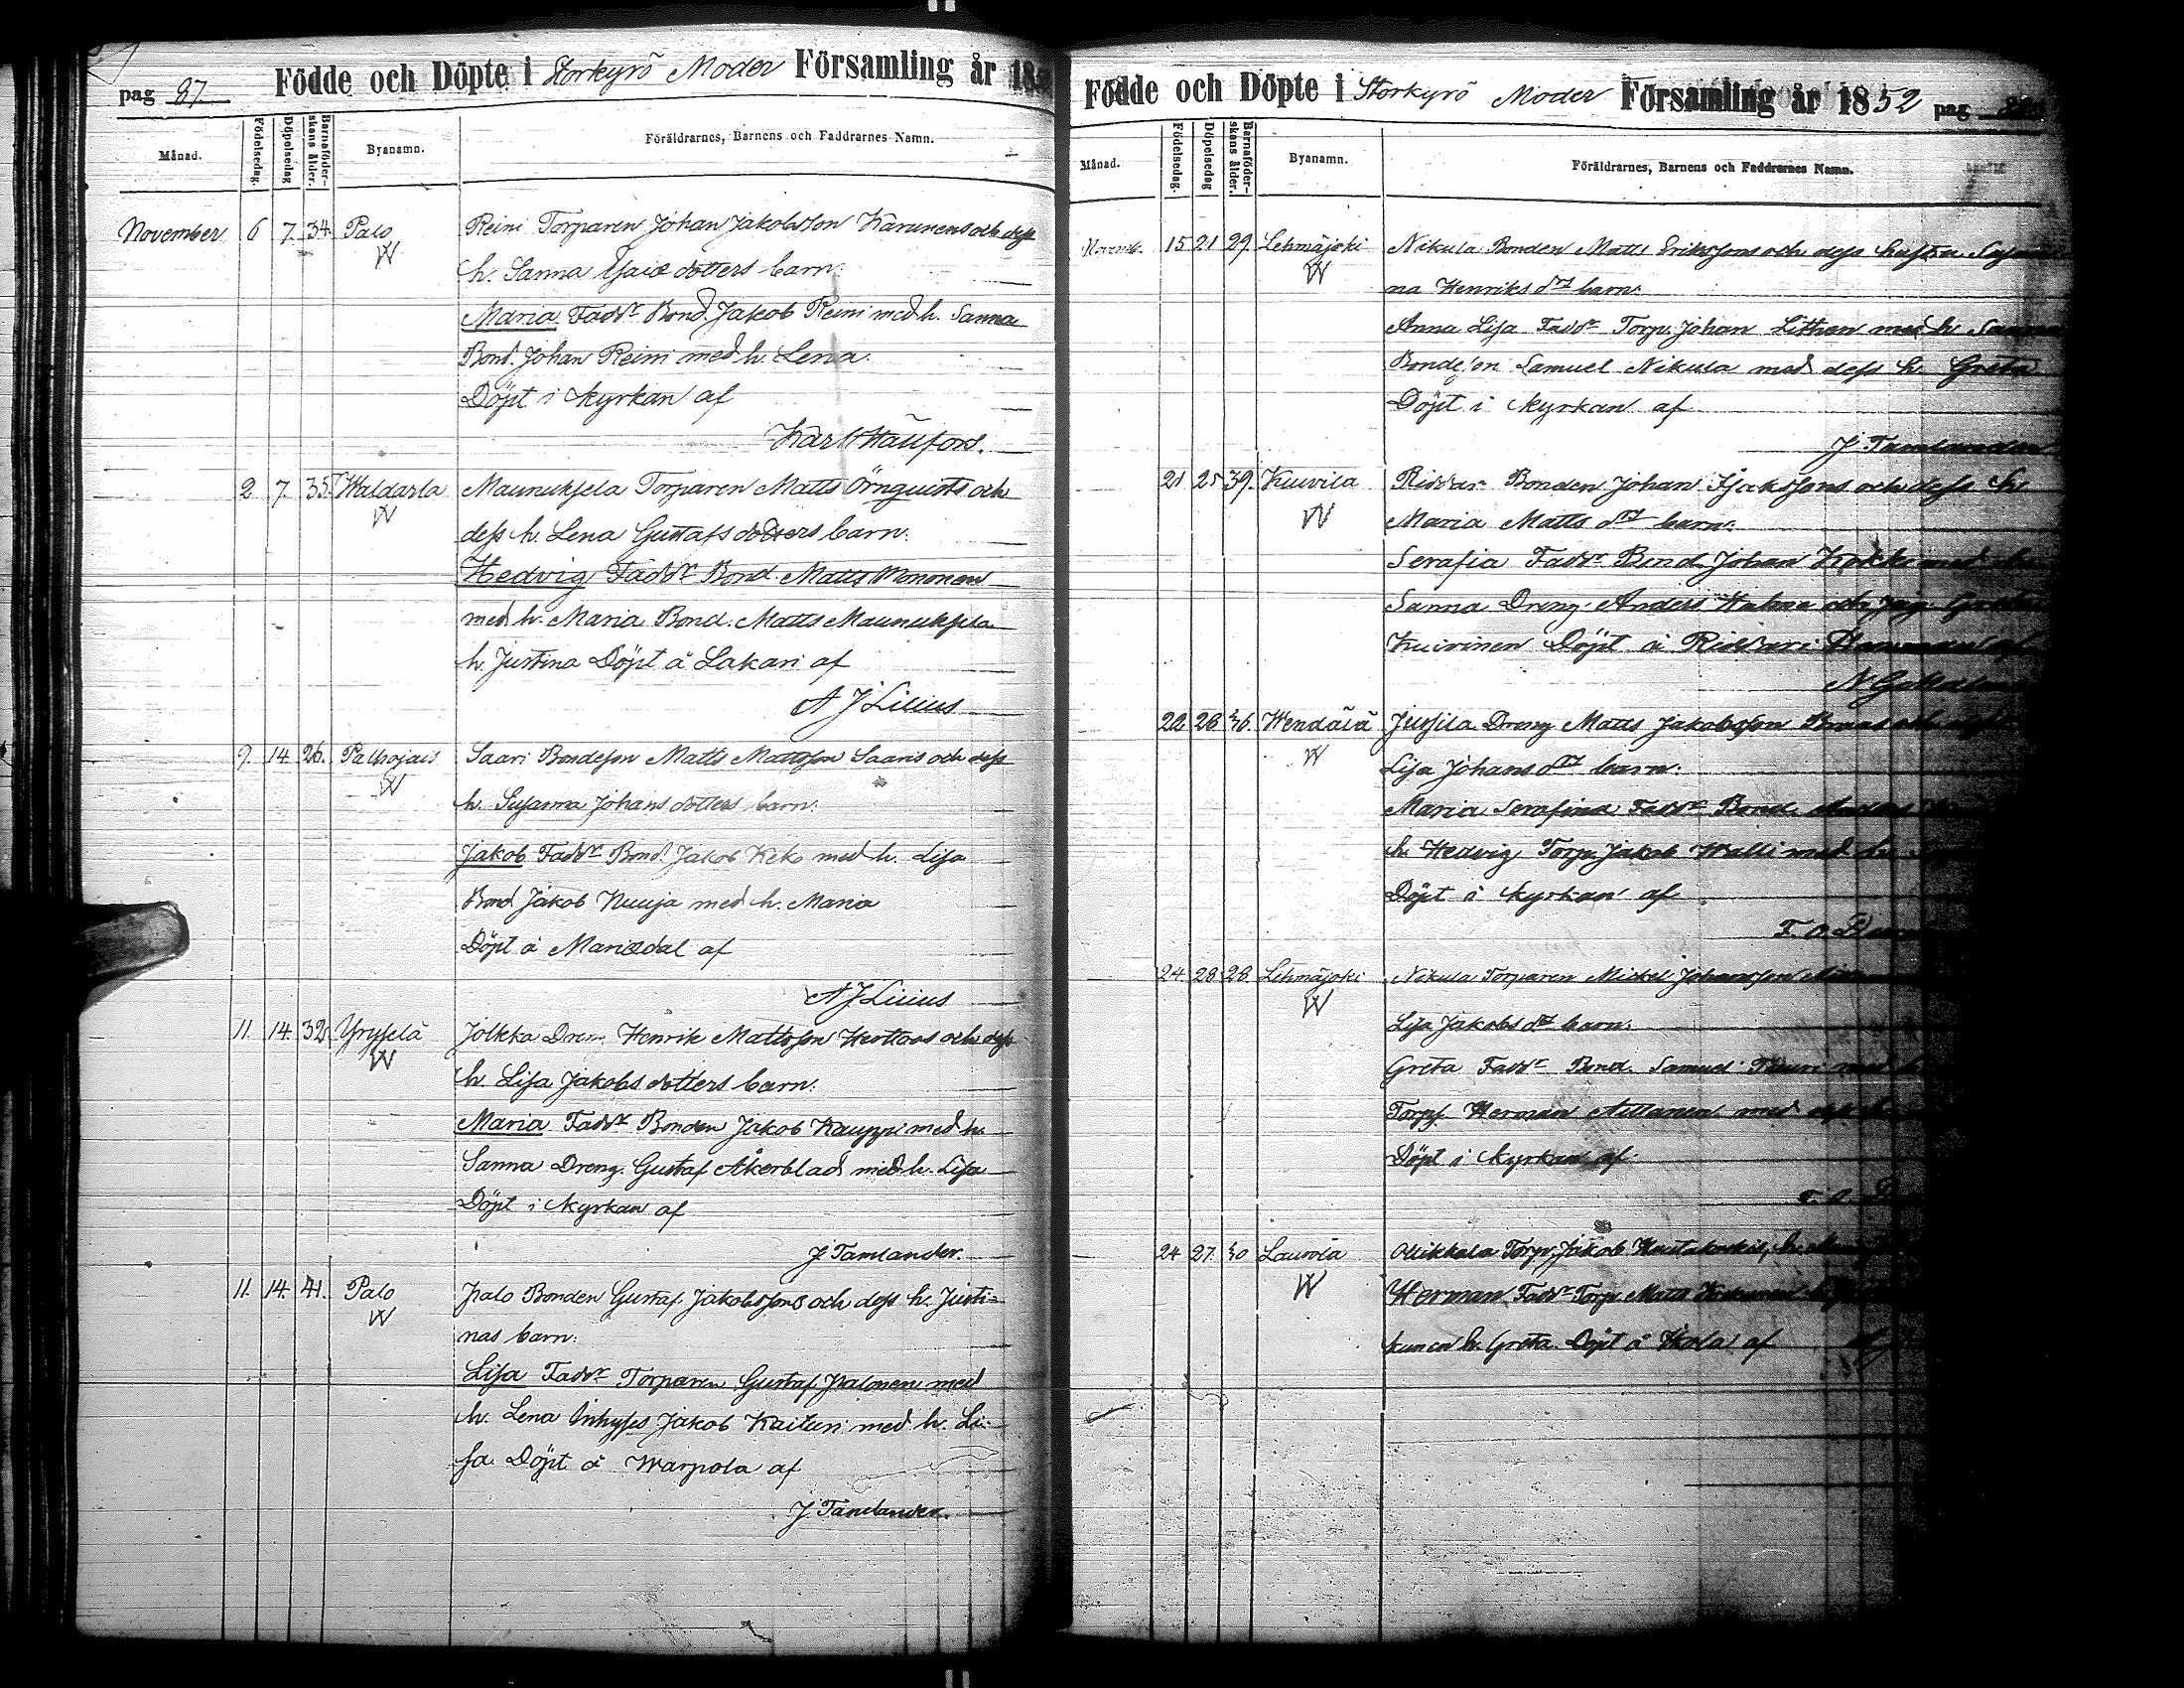 pag 87.
Födde och Döpte i Storkyrö Moder Församling år 185
Månad.
Födelsedag.
Döpelsedag
Barnaföderskans ålder.
Byanamn.
Föräldrarnes, Barnens och Faddrarnes Namn.
November 6 7. 34. Palo Reini Torparen Johan Jakobsson Karunens och dess
W h. Sanna Esaiæ dotters barn.
Maria Faddr Bond. Jakob Reini med h. Sanna
Bond. Johan Reini med h. Lena.
Döpt i Kyrkan af
Karl
2. 7. 35. Waldarla Maunuksela Torparen Matts Örnquists och
W dess h. Lena Gustafs dotters barn.
Hedvig Faddr Bond. Matts Mononen
med h. Maria Bond. Matts Maunuksela
h. Justina Döpt å Lakari af
A J Lilius
9. 14. 26. Palhojais Saari Bondeson Matts Mattsson Saaris och dess
W h. Susanna Johans dotters barn.
Jakob Faddr Bond. Jakob Keko med h. Lisa
Bond Jakob Nuuja med h. Maria
Döpt å Mariædal af
A J Lilius
11. 14. 32. Yrysselä Jolkka Dreng Henrik Mattsson Herttoos och dess
W h. Lisa Jakobs dotters barn.
Maria Faddr Bonden Jakob Kauppi med h.
Sanna Dreng. Gustaf Åkerblad med h. Lisa
Döpt i Kyrkan af
J Tamlander.
11. 14. 41. Palo Palo Bonden Gustaf Jakobssons och dess h. Justi-
W nas barn.
Lisa Faddr Torparen Gustaf Palonen med
h. Lena Inhyses Jakob Kaituri med h. Li-
sa. Döpt å Warpola af
J Tamlander.
Födde och Döpte i Storkyrö Moder Församling år 1852 pag
Månad.
Födelsedag.
Döpelsedag
Barnaföderskans ålder.
Byanamn.
Föräldrarnes, Barnens och Faddrarnes Namn.
Novemb. 15 21 29. Lehmäjoki Nikula Bonden Matts Erikssons och dess hustru Susan
W na Henriks dr barn.
Anna Lisa Faddr Torp. Johan Lithen med h. Sanna
Bondeson Samuel Nikula med dess h. Greta
Döpt i Kyrkan af
J Tamlander
21 25 39. Kuivila Riddar Bonden Johan Isakssons och dess h.
W Maria Matts dr barn.
Serafia Faddr Bond. Johan Kokki med h.
Sanna Dreng. Anders och Pig Greta
Kuivinen Döpt å Riddari af
N
22 26 36. Wendälä Jussila Dreng Matts Jakobsson och
W Lisa Johans dr barn.
Maria Serafina Faddr Bond. Anders
h. Hedvig Torp. Jakob Walli med h.
Döpt i Kyrkan af
F. O.
24. 28 28. Lehmäjoki Nikula Torparen Mickel Johansson
W Lisa Jakobs dr barn.
Greta Faddr Bond. Samuel med h
Torp. Herman med dess h.
Döpt i Kyrkan af
F. O.
24 27. 30 Laurola Ollikkala Torp. Jakob h.
W Herman Faddr Torp. Matts
h. Greta. Döpt å Skola af